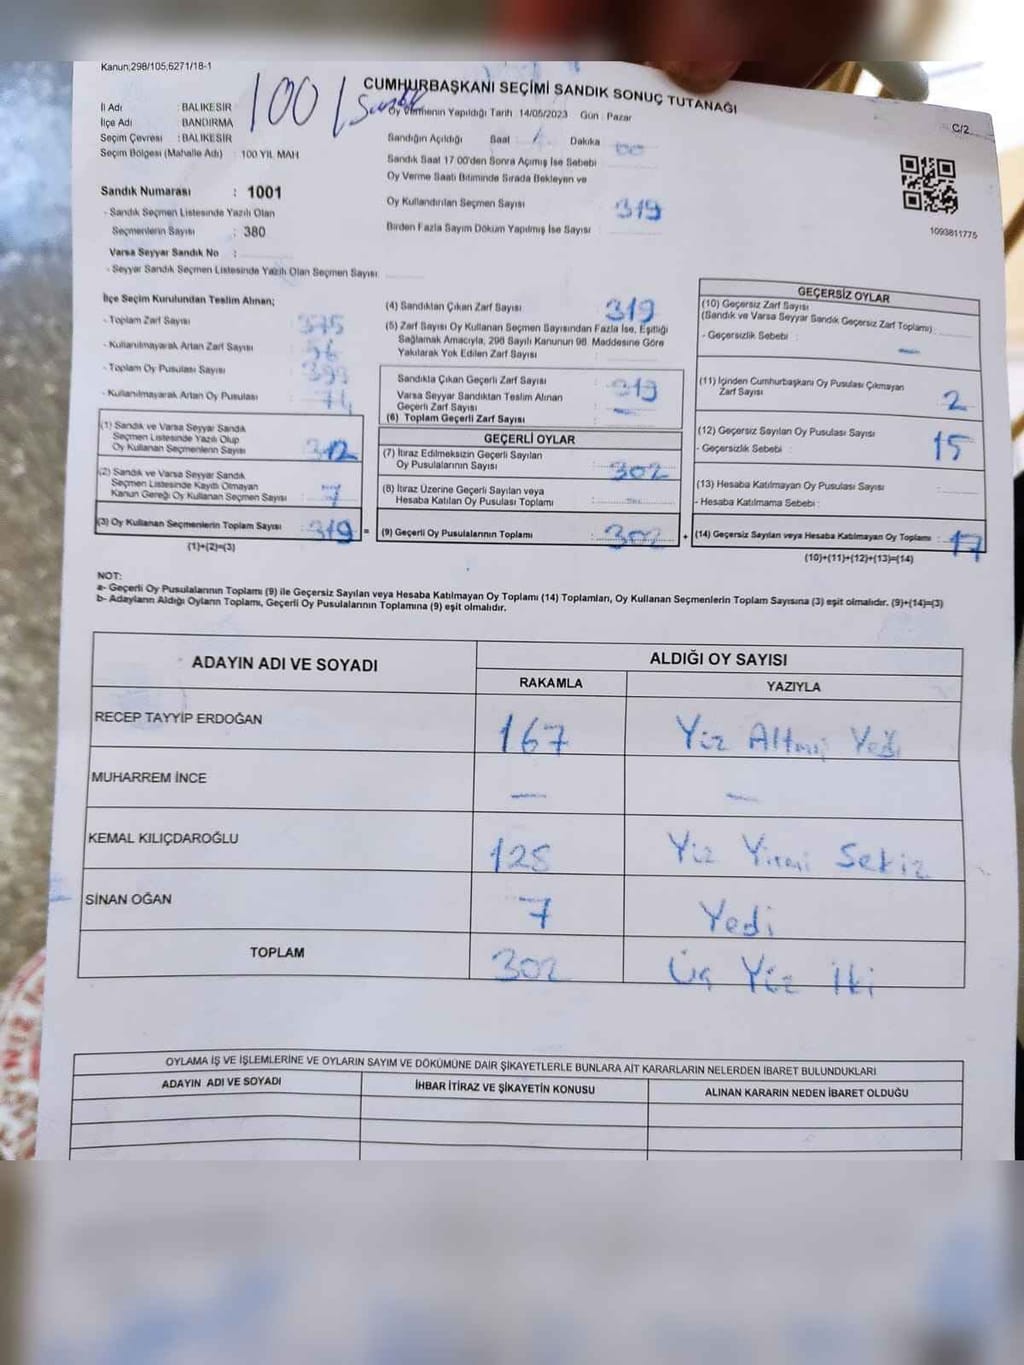 Kanun;298/105,6271/18-1
CUMHURBAŞKANI SEÇİMİ SANDIK SONUÇ TUTANAĞI
1001
C/2
İl Adı : BALIKESİR
İlçe Adı : BANDIRMA
Seçim Çevresi : BALIKESİR
Seçim Bölgesi (Mahalle Adı) : 100 YIL MAH
Oy Vermenin Yapıldığı Tarih : 14/05/2023 Gün : Pazar
Sandığın Açıldığı Saat : Dakika : 00
Sandık Saat 17:00'den Sonra Açımış İse Sebebi
Oy Verme Saati Bitiminde Sırada Bekleyen ve
Oy Kullandırılan Seçmen Sayısı : 319
Birden Fazla Sayım Döküm Yapılmış İse Sayısı
1093811775
Sandık Numarası : 1001
- Sandık Seçmen Listesinde Yazılı Olan
Seçmenlerin Sayısı : 380
Varsa Seyyar Sandık No :
- Seyyar Sandık Seçmen Listesinde Yazılı Olan Seçmen Sayısı:
İlçe Seçim Kurulundan Teslim Alınan;
- Toplam Zarf Sayısı : 375
- Kullanılmayarak Artan Zarf Sayısı : 56
- Toplam Oy Pusulası Sayısı : 393
- Kullanılmayarak Artan Oy Pusulası : 74
(1) Sandık ve Varsa Seyyar Sandık
Seçmen Listesinde Yazılı Olup
Oy Kullanan Seçmenlerin Sayısı : 312
(2) Sandık ve Varsa Seyyar Sandık
Seçmen Listesinde Kayıtlı Olmayan
Kanun Gereği Oy Kullanan Seçmen Sayısı : 7
(3) Oy Kullanan Seçmenlerin Toplam Sayısı : 319 =
(1)+(2)=(3)
(4) Sandıktan Çıkan Zarf Sayısı : 319
(5) Zarf Sayısı Oy Kullanan Seçmen Sayısından Fazla İse, Eşitliği
Sağlamak Amacıyla, 298 Sayılı Kanunun 98. Maddesine Göre
Yakılarak Yok Edilen Zarf Sayısı :
Sandıkta Çıkan Geçerli Zarf Sayısı : 319
Varsa Seyyar Sandıktan Teslim Alınan
Geçerli Zarf Sayısı : -
(6) Toplam Geçerli Zarf Sayısı :
GEÇERLİ OYLAR
(7) İtiraz Edilmeksizin Geçerli Sayılan
Oy Pusulalarının Sayısı : 302
(8) İtiraz Üzerine Geçerli Sayılan veya
Hesaba Katılan Oy Pusulası Toplamı : -
(9) Geçerli Oy Pusulalarının Toplamı : 302 +
GEÇERSİZ OYLAR
(10) Geçersiz Zarf Sayısı
(Sandık ve Varsa Seyyar Sandık Geçersiz Zarf Toplamı) :
- Geçersizlik Sebebi : -
(11) İçinden Cumhurbaşkanı Oy Pusulası Çıkmayan
Zarf Sayısı : 2
(12) Geçersiz Sayılan Oy Pusulası Sayısı : 15
- Geçersizlik Sebebi :
(13) Hesaba Katılmayan Oy Pusulası Sayısı :
- Hesaba Katılmama Sebebi :
(14) Geçersiz Sayılan veya Hesaba Katılmayan Oy Toplamı : 17
(10)+(11)+(12)+(13)=(14)
NOT:
a- Geçerli Oy Pusulalarının Toplamı (9) ile Geçersiz Sayılan veya Hesaba Katılmayan Oy Toplamı (14) Toplamları, Oy Kullanan Seçmenlerin Toplam Sayısına (3) eşit olmalıdır. (9)+(14)=(3)
b- Adayların Aldığı Oyların Toplamı, Geçerli Oy Pusulalarının Toplamına (9) eşit olmalıdır.
ADAYIN ADI VE SOYADI ALDIĞI OY SAYISI
RAKAMLA YAZIYLA
RECEP TAYYİP ERDOĞAN 167 Yüz Altmış Yedi
MUHARREM İNCE - -
KEMAL KILIÇDAROĞLU 128 Yüz Yirmi Sekiz
SİNAN OĞAN 7 Yedi
TOPLAM 302 Üç Yüz İki
OYLAMA İŞ VE İŞLEMLERİNE VE OYLARIN SAYIM VE DÖKÜMÜNE DAİR ŞİKAYETLERLE BUNLARA AİT KARARLARIN NELERDEN İBARET BULUNDUKLARI
ADAYIN ADI VE SOYADI İHBAR İTİRAZ VE ŞİKAYETİN KONUSU ALINAN KARARIN NEDEN İBARET OLDUĞU